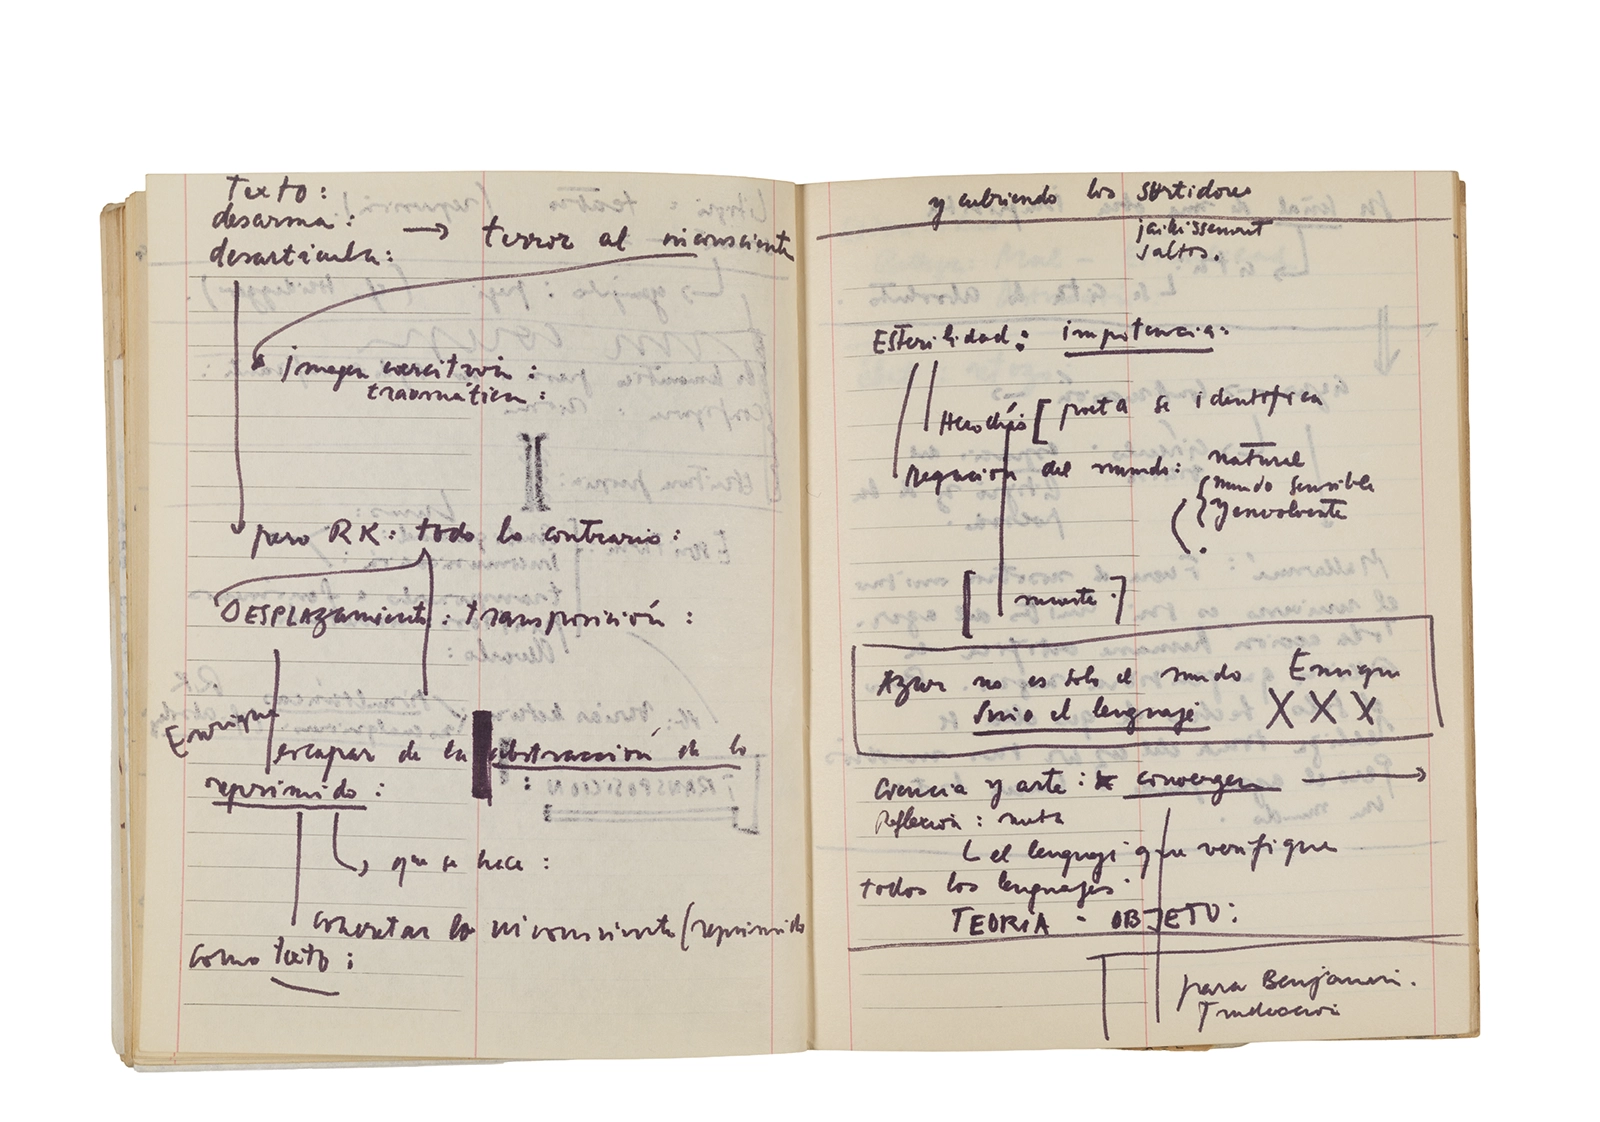 Texto:
desarma:
desarticula: → terror al inconsciente
imagen coercitiva:
traumática:
pero RK: todo lo contrario:
DESPLAZamiento: transposición:
Enrique
escapar de la abstracción de lo
reprimido:
que se hace:
concretar lo inconsciente (reprimido
como texto:
y cubriendo los surtidores
jaillissement
saltos.
Esterilidad: impotencia:
[poeta se identifica
Negación del mundo: natural
mundo sensible
y envolvente
[muerte.]
Azur no es solo el mundo Enrique
sino el lenguaje XXX
Ciencia y arte: convergen →
Reflexión: meta
el lenguaje que verifique
todos los lenguajes.
TEORIA - OBJETO:
para Benjamin.
Traducción